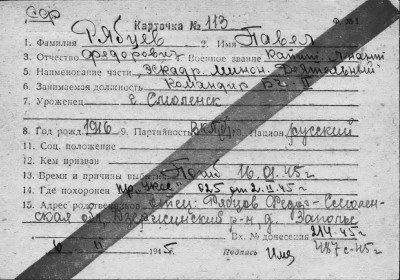 ССР
Карточка № 113
Ф № 1
1. Фамилия Рябцев 2. Имя Павел
3. Отчество Федорович Военное звание
4. Наименование части эскадр. минон.
5. Занимаемая должность Командир БЧ-II
7. Уроженец г. Смоленск
8. Год рожд. 1916 9. Партийность ВКП(б) 10. Национ. русский
11. Соц. положение
12. Кем призван
13. Время и причины выбытия Погиб 16.01.45 г
14. Где похоронен пр. 025 от 2.II.45 г
15. Адрес родственников отец: Рябцов Федор - Смолен-
ская обл. р-н д. Заполье
Вх. № донесения 214-45 г
6 II 1945 г. Подпись 487с-45 г.